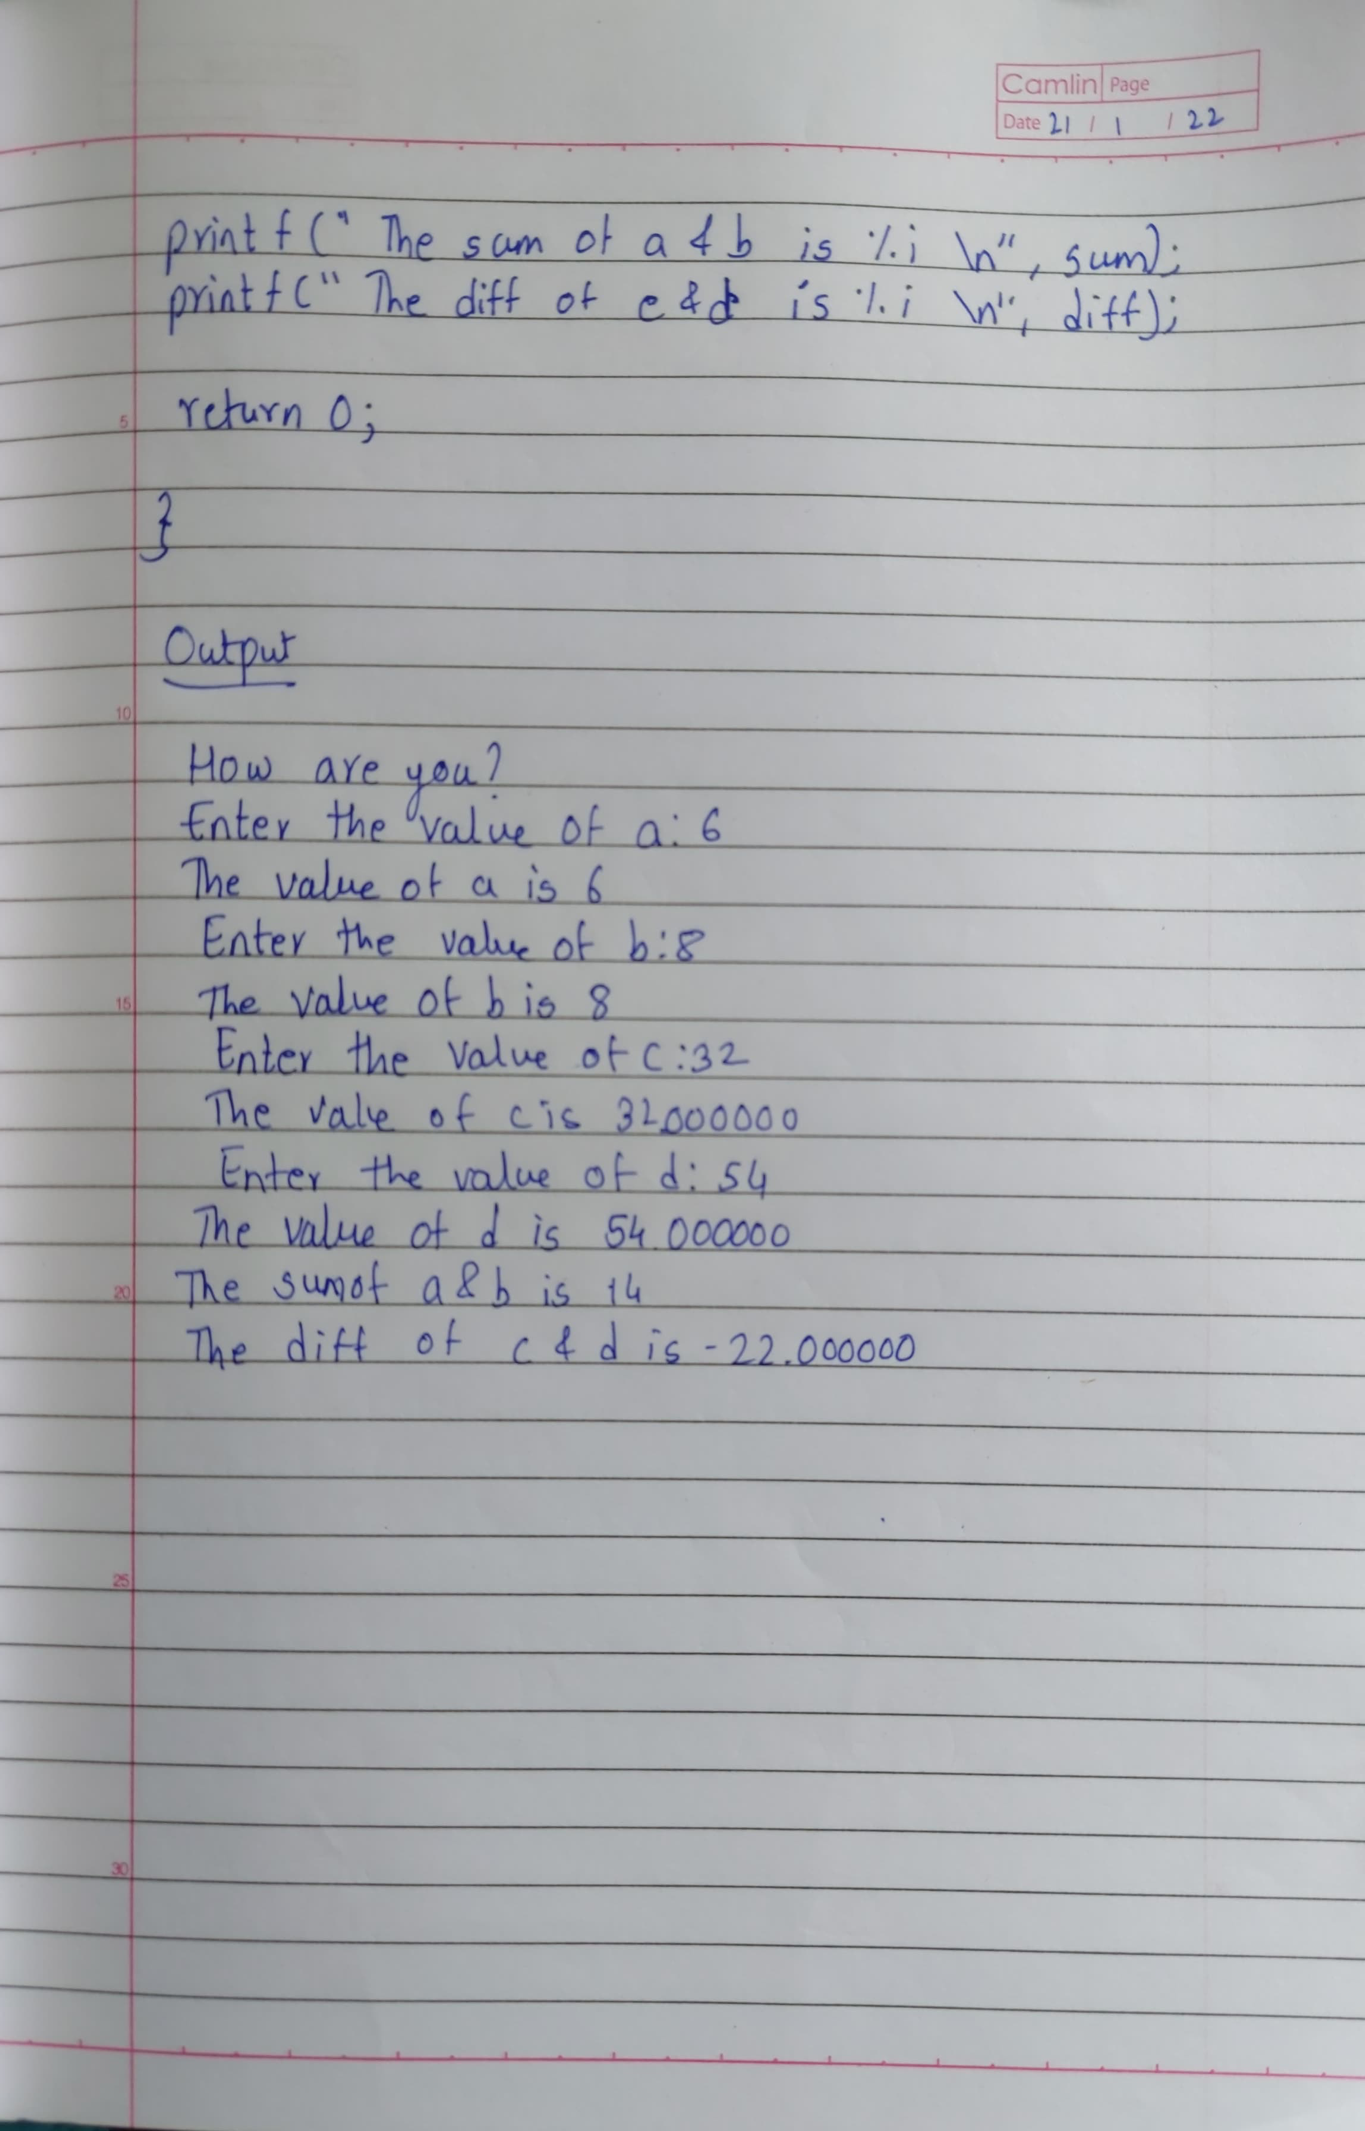 Camlin Page
Date 21 / 1 / 22
printf (" The sum of a & b is %i \n", sum);
printf (" The diff of c & d is %i \n", diff);
5
return 0;
}
Output
10
How are you?
Enter the value of a: 6
The value of a is 6
Enter the value of b:8
15
The value of b is 8
Enter the value of c:32
The value of c is 32.000000
Enter the value of d: 54
The value of d is 54.000000
20
The sum of a & b is 14
The diff of c & d is -22.000000
25
30